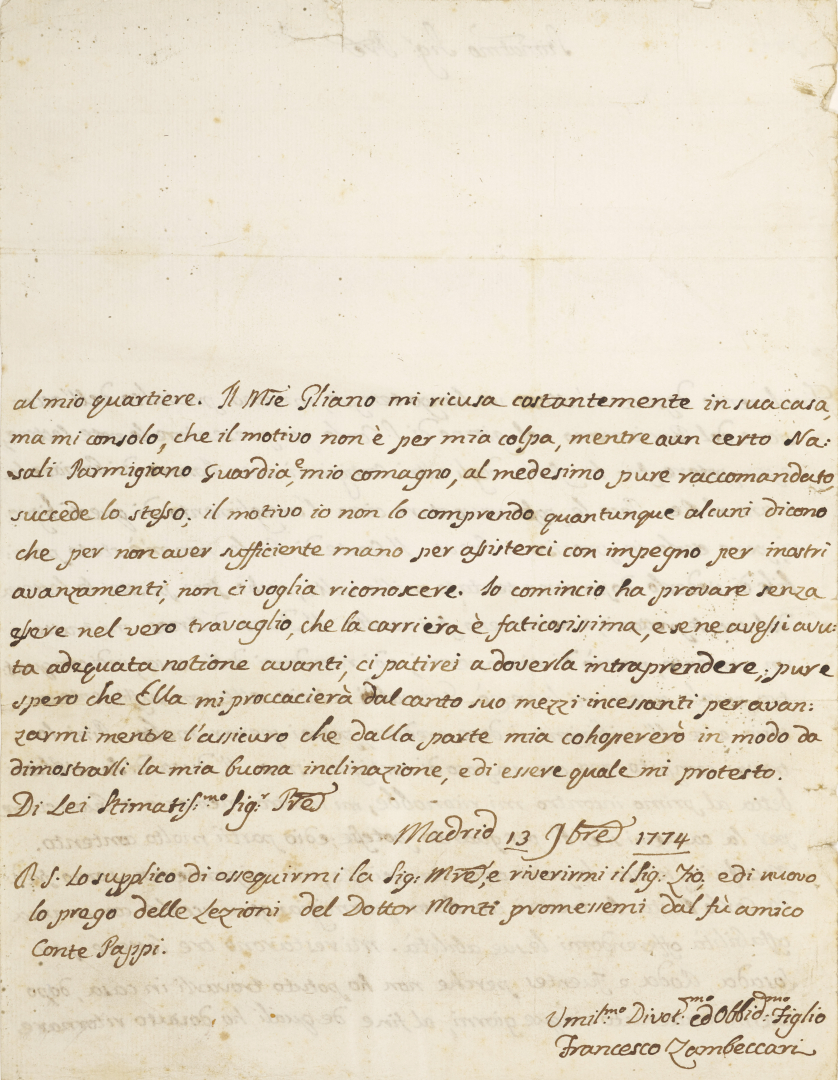 al mio quartiere. Il Msè Gliano mi ricusa costantemente in sua casa,
ma mi consolo, che il motivo non è per mia colpa, mentre a un certo Na:
sali Parmigiano Guardia, e mio comagno, al medesimo pure raccomandato,
succede lo stesso; il motivo io non lo comprendo quantunque alcuni dicono
che per non aver sufficiente mano per assisterci con impegno per i nostri
avanzamenti, non ci voglia riconoscere. Io comincio ha provare senza
essere nel vero travaglio, che la carriera è faticosissima, e se ne avessi avu:
ta adequata notione avanti, ci patirei a doverla intraprendere; pure
spero che Ella mi proccacierà dal canto suo mezzi incessanti per avan:
zarmi mentre l'assicuro che dalla parte mia cohopererò in modo da
dimostrarli la mia buona inclinazione, e di essere quale mi protesto.
Di Lei Stimatis:mo Sig:r Pre
Madrid 13 9bre 1774
P. S. Lo supplico di ossequirmi la Sig: Mre, e riverirmi il Sig: Zio, e di nuovo
lo prego delle Lezioni del Dottor Monti promessemi dal fù amico
Conte Pappi.
Umil:mo Divot:mo ed Obbid:mo Figlio
Francesco Zambeccari